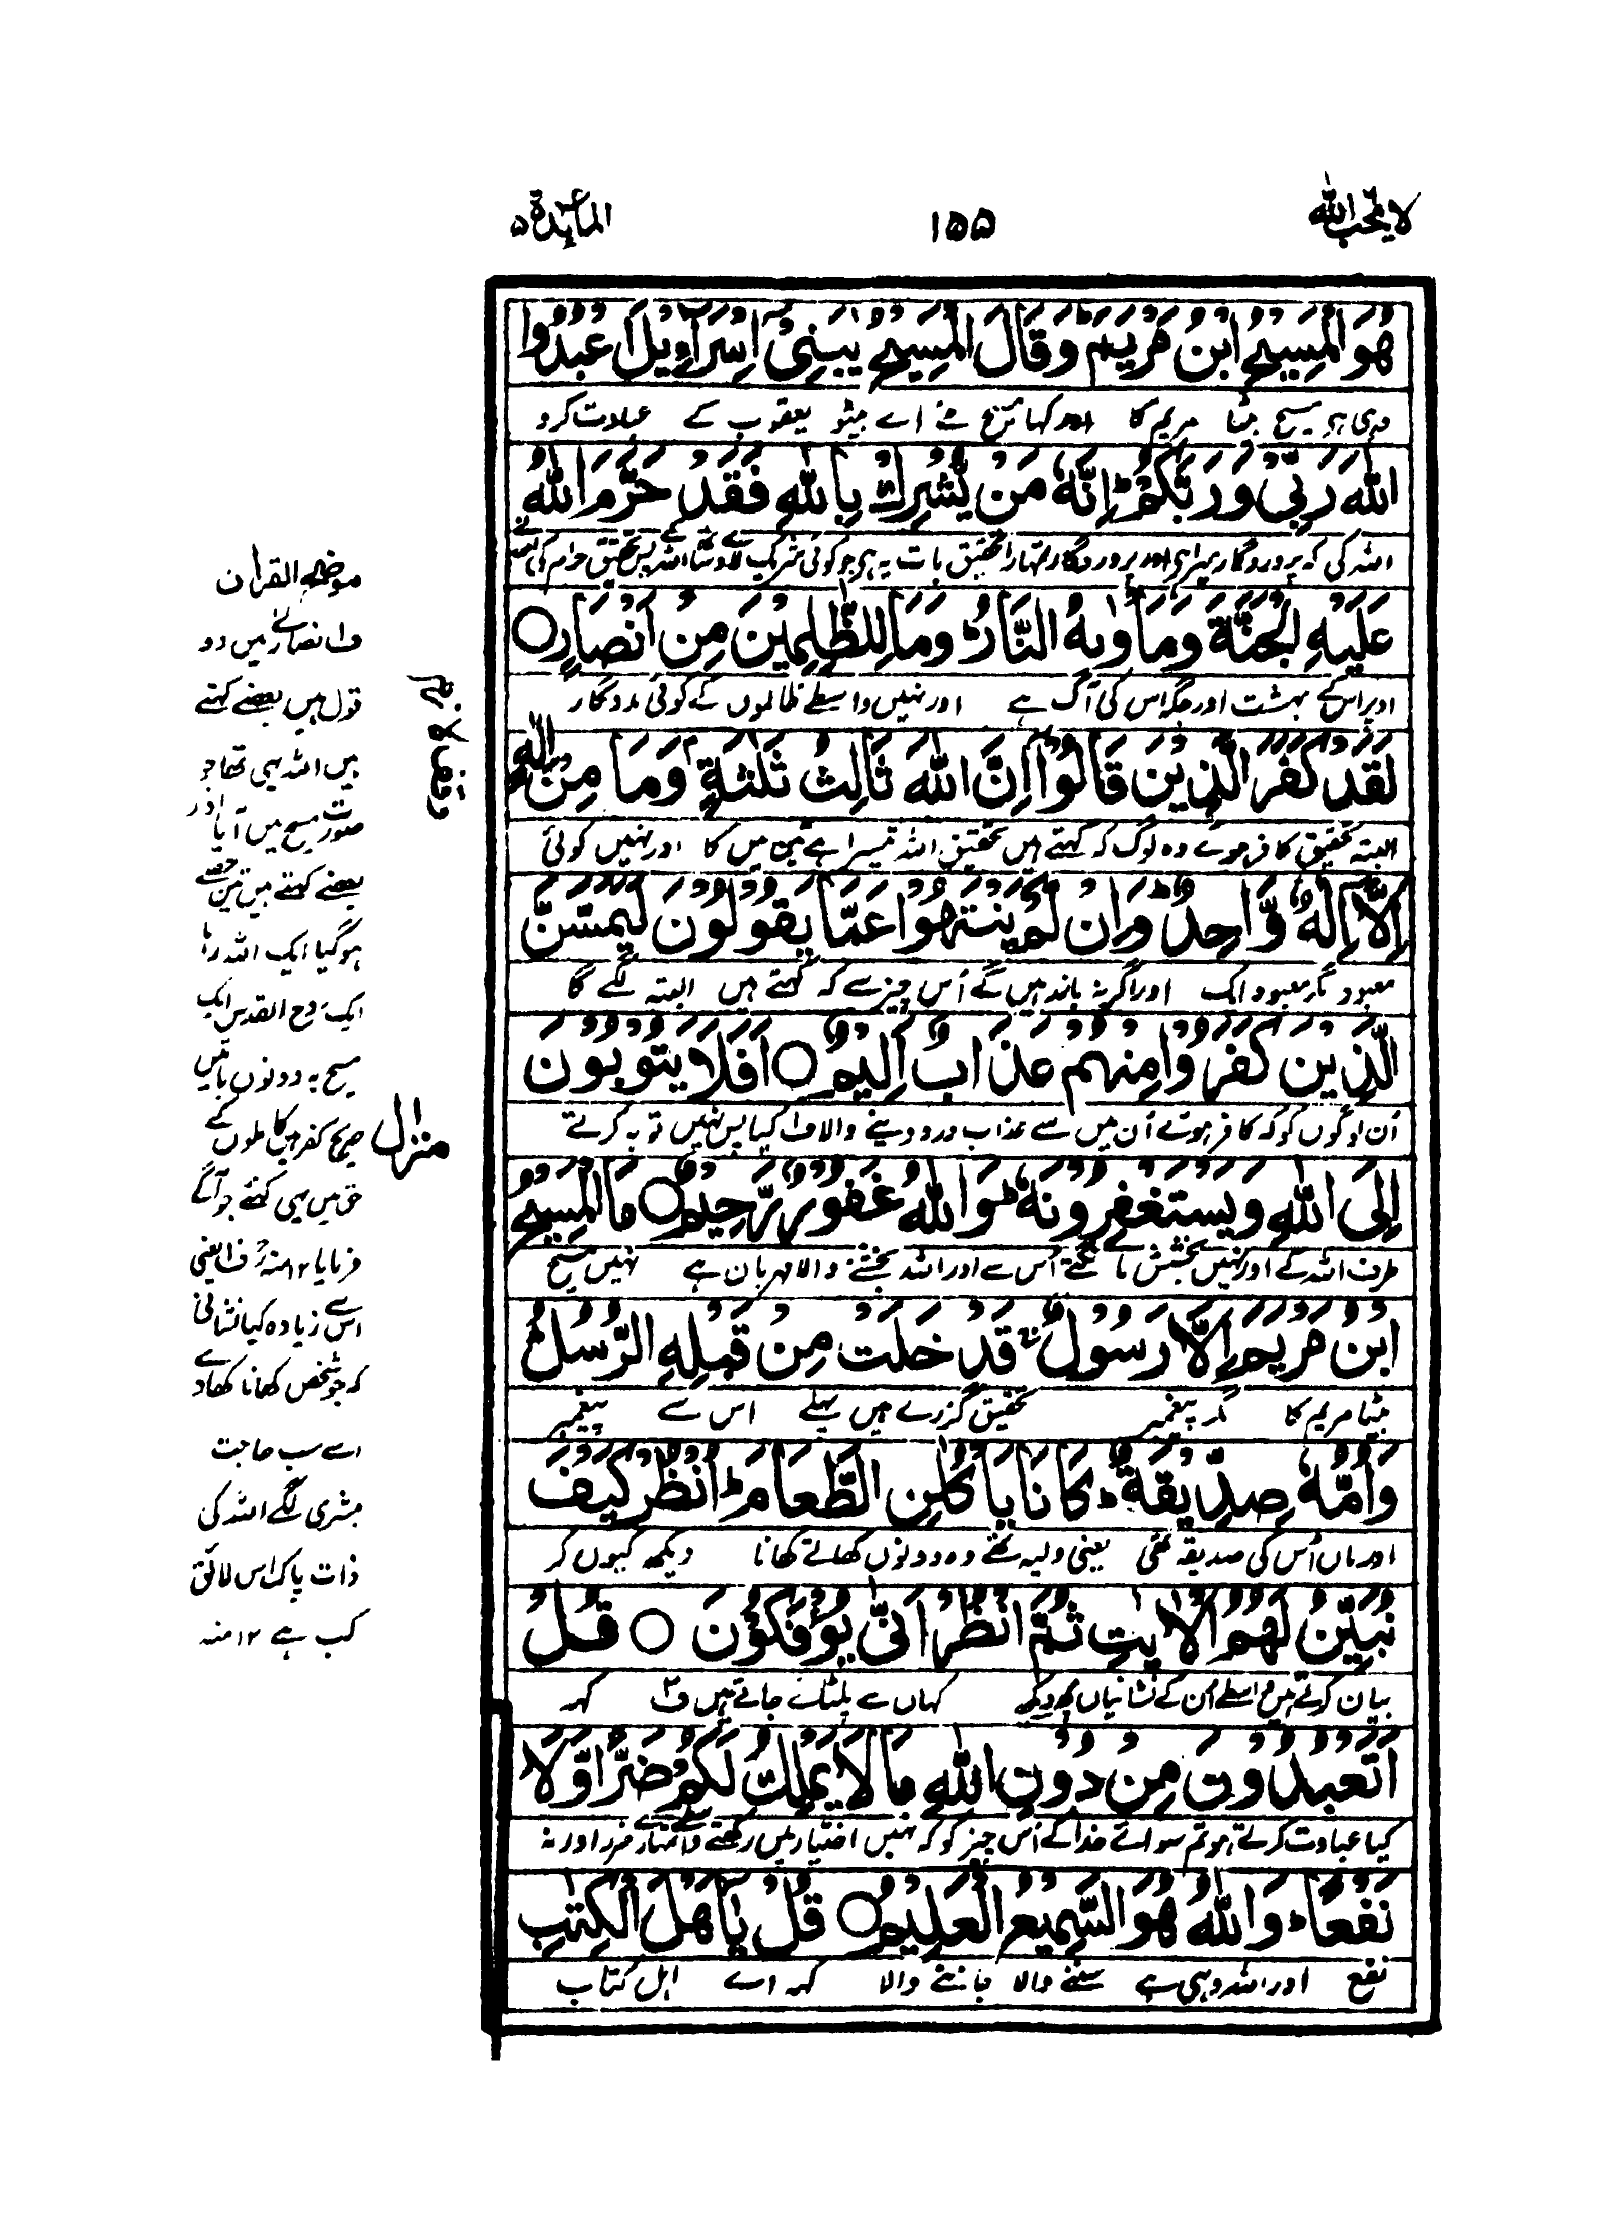 لا یحب اللہ
۱۵۵
المآئدۃ ۵
هُوَ الْمَسِيْحُ ابْنُ مَرْيَمَ ؕ وَقَالَ الْمَسِيْحُ يٰبَنِيْۤ اِسْرَآءِيْلَ اعْبُدُوا
وہی ہی مسیح بیٹا مریم کا اور کہا مسیح نے اے بیٹو یعقوب کے عبادت کرو
اللّٰهَ رَبِّيْ وَرَبَّكُمْ ؕ اِنَّهٗ مَنْ يُّشْرِكْ بِاللّٰهِ فَقَدْ حَرَّمَ اللّٰهُ
اللہ کی کہ پروردگار میرا ہی اور پروردگار تمہارا تحقیق بات یہ ہی جو کوئی شریک لاوے ساتھ اللہ کے پس تحقیق حرام کی اللہ نے
عَلَيْهِ الْجَنَّةَ وَمَاْوٰىهُ النَّارُ ؕ وَمَا لِلظّٰلِمِيْنَ مِنْ اَنْصَارٍ ○
اوپر اس کے بہشت اور جگہ اس کی آگ ہے اور نہیں واسطے ظالموں کے کوئی مددگار
لَقَدْ كَفَرَ الَّذِيْنَ قَالُوْۤا اِنَّ اللّٰهَ ثَالِثُ ثَلٰثَةٍ ۘ وَمَا مِنْ اِلٰهٍ
البتہ تحقیق کافر ہوے وہ لوگ کہ کہتے ہیں تحقیق اللہ تیسرا ہے تین میں کا اور نہیں کوئی
اِلَّاۤ اِلٰهٌ وَّاحِدٌ ؕ وَاِنْ لَّمْ يَنْتَهُوْا عَمَّا يَقُوْلُوْنَ لَيَمَسَّنَّ
معبود مگر معبود ایک اور اگر نہ باز رہیں گے اُس چیز سے کہ کہتے ہیں البتہ لگے گا
الَّذِيْنَ كَفَرُوْا مِنْهُمْ عَذَابٌ اَلِيْمٌ ○ اَفَلَا يَتُوْبُوْنَ
اُن لوگوں کو کہ کافر ہوئے اُن میں سے عذاب درد دینے والا ف۱ کیا پس نہیں توبہ کرتے
اِلَى اللّٰهِ وَيَسْتَغْفِرُوْنَهٗ ؕ وَاللّٰهُ غَفُوْرٌ رَّحِيْمٌ ○ مَا الْمَسِيْحُ
طرف اللہ کے اور نہیں بخشش مانگتے اُس سے اور اللہ بخشنے والا مہربان ہے نہیں مسیح
ابْنُ مَرْيَمَ اِلَّا رَسُوْلٌ ۚ قَدْ خَلَتْ مِنْ قَبْلِهِ الرُّسُلُ ؕ
بیٹا مریم کا مگر پیغمبر تحقیق گزرے ہیں پہلے اس سے پیغمبر
وَاُمُّهٗ صِدِّيْقَةٌ ؕ كَانَا يَاْكُلٰنِ الطَّعَامَ ؕ اُنْظُرْ كَيْفَ
اور ماں اُس کی صدیقہ تھی یعنی ولیہ تھے وہ دونوں کھاتے کھانا دیکھ کیوں کر
نُبَيِّنُ لَهُمُ الْاٰيٰتِ ثُمَّ انْظُرْ اَنّٰى يُؤْفَكُوْنَ ○ قُلْ
بیان کرتے ہیں ہم واسطے اُن کے نشانیاں پھر دیکھ کہاں سے پلٹائے جاتے ہیں ف۲ کہہ
اَتَعْبُدُوْنَ مِنْ دُوْنِ اللّٰهِ مَا لَا يَمْلِكُ لَكُمْ ضَرًّا وَّلَا
کیا عبادت کرتے ہو تم سوائے خدا کے اُس چیز کو کہ نہیں اختیار میں رکھتے واسطے تمہارے ضرر اور نہ
نَفْعًا ؕ وَاللّٰهُ هُوَ السَّمِيْعُ الْعَلِيْمُ ○ قُلْ يٰۤاَهْلَ الْكِتٰبِ
نفع اور اللہ وہی ہے سننے والا جاننے والا کہہ اے اہل کتاب
وقف لازم
منزل
موضح القرآن
ف۱ نصاریٰ میں دو
قول ہیں بعضے کہتے
ہیں اللہ یہی تھا جو
صورت مسیح میں آیا اور
بعضے کہتے ہیں تین حصے
ہوگیا ایک اللہ رہا
ایک روح القدس ایک
مسیح یہ دونوں باتیں
صریح کفر ہیں کاملوں کے
حق میں یہی کہئے جو آگے
فرمایا ۱۲ منہ ف۲ یعنی
اس سے زیادہ کیا نشانی
کہ جو شخص کھانا کھاوے
اسے سب حاجت
بشری لگے اللہ کی
ذات پاک اس لائق
کب ہے ۱۲ منہ